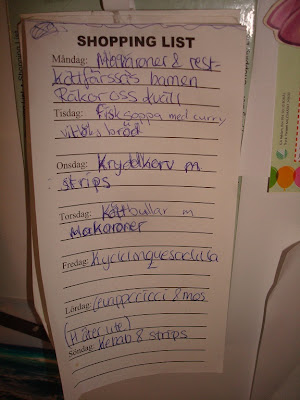 SHOPPING LIST
Måndag: Makaroner & rest-
köttfärssås barnen
Räkor oss kväll
Tisdag: Fisksoppa med curry
vitlöks bröd
Onsdag: Kryddkorv m
strips
Torsdag: Köttbullar m
Makaroner
Fredag: Kycklingquesadilla
Lördag: & mos
(H äter ute)
Söndag: Kebab & strips